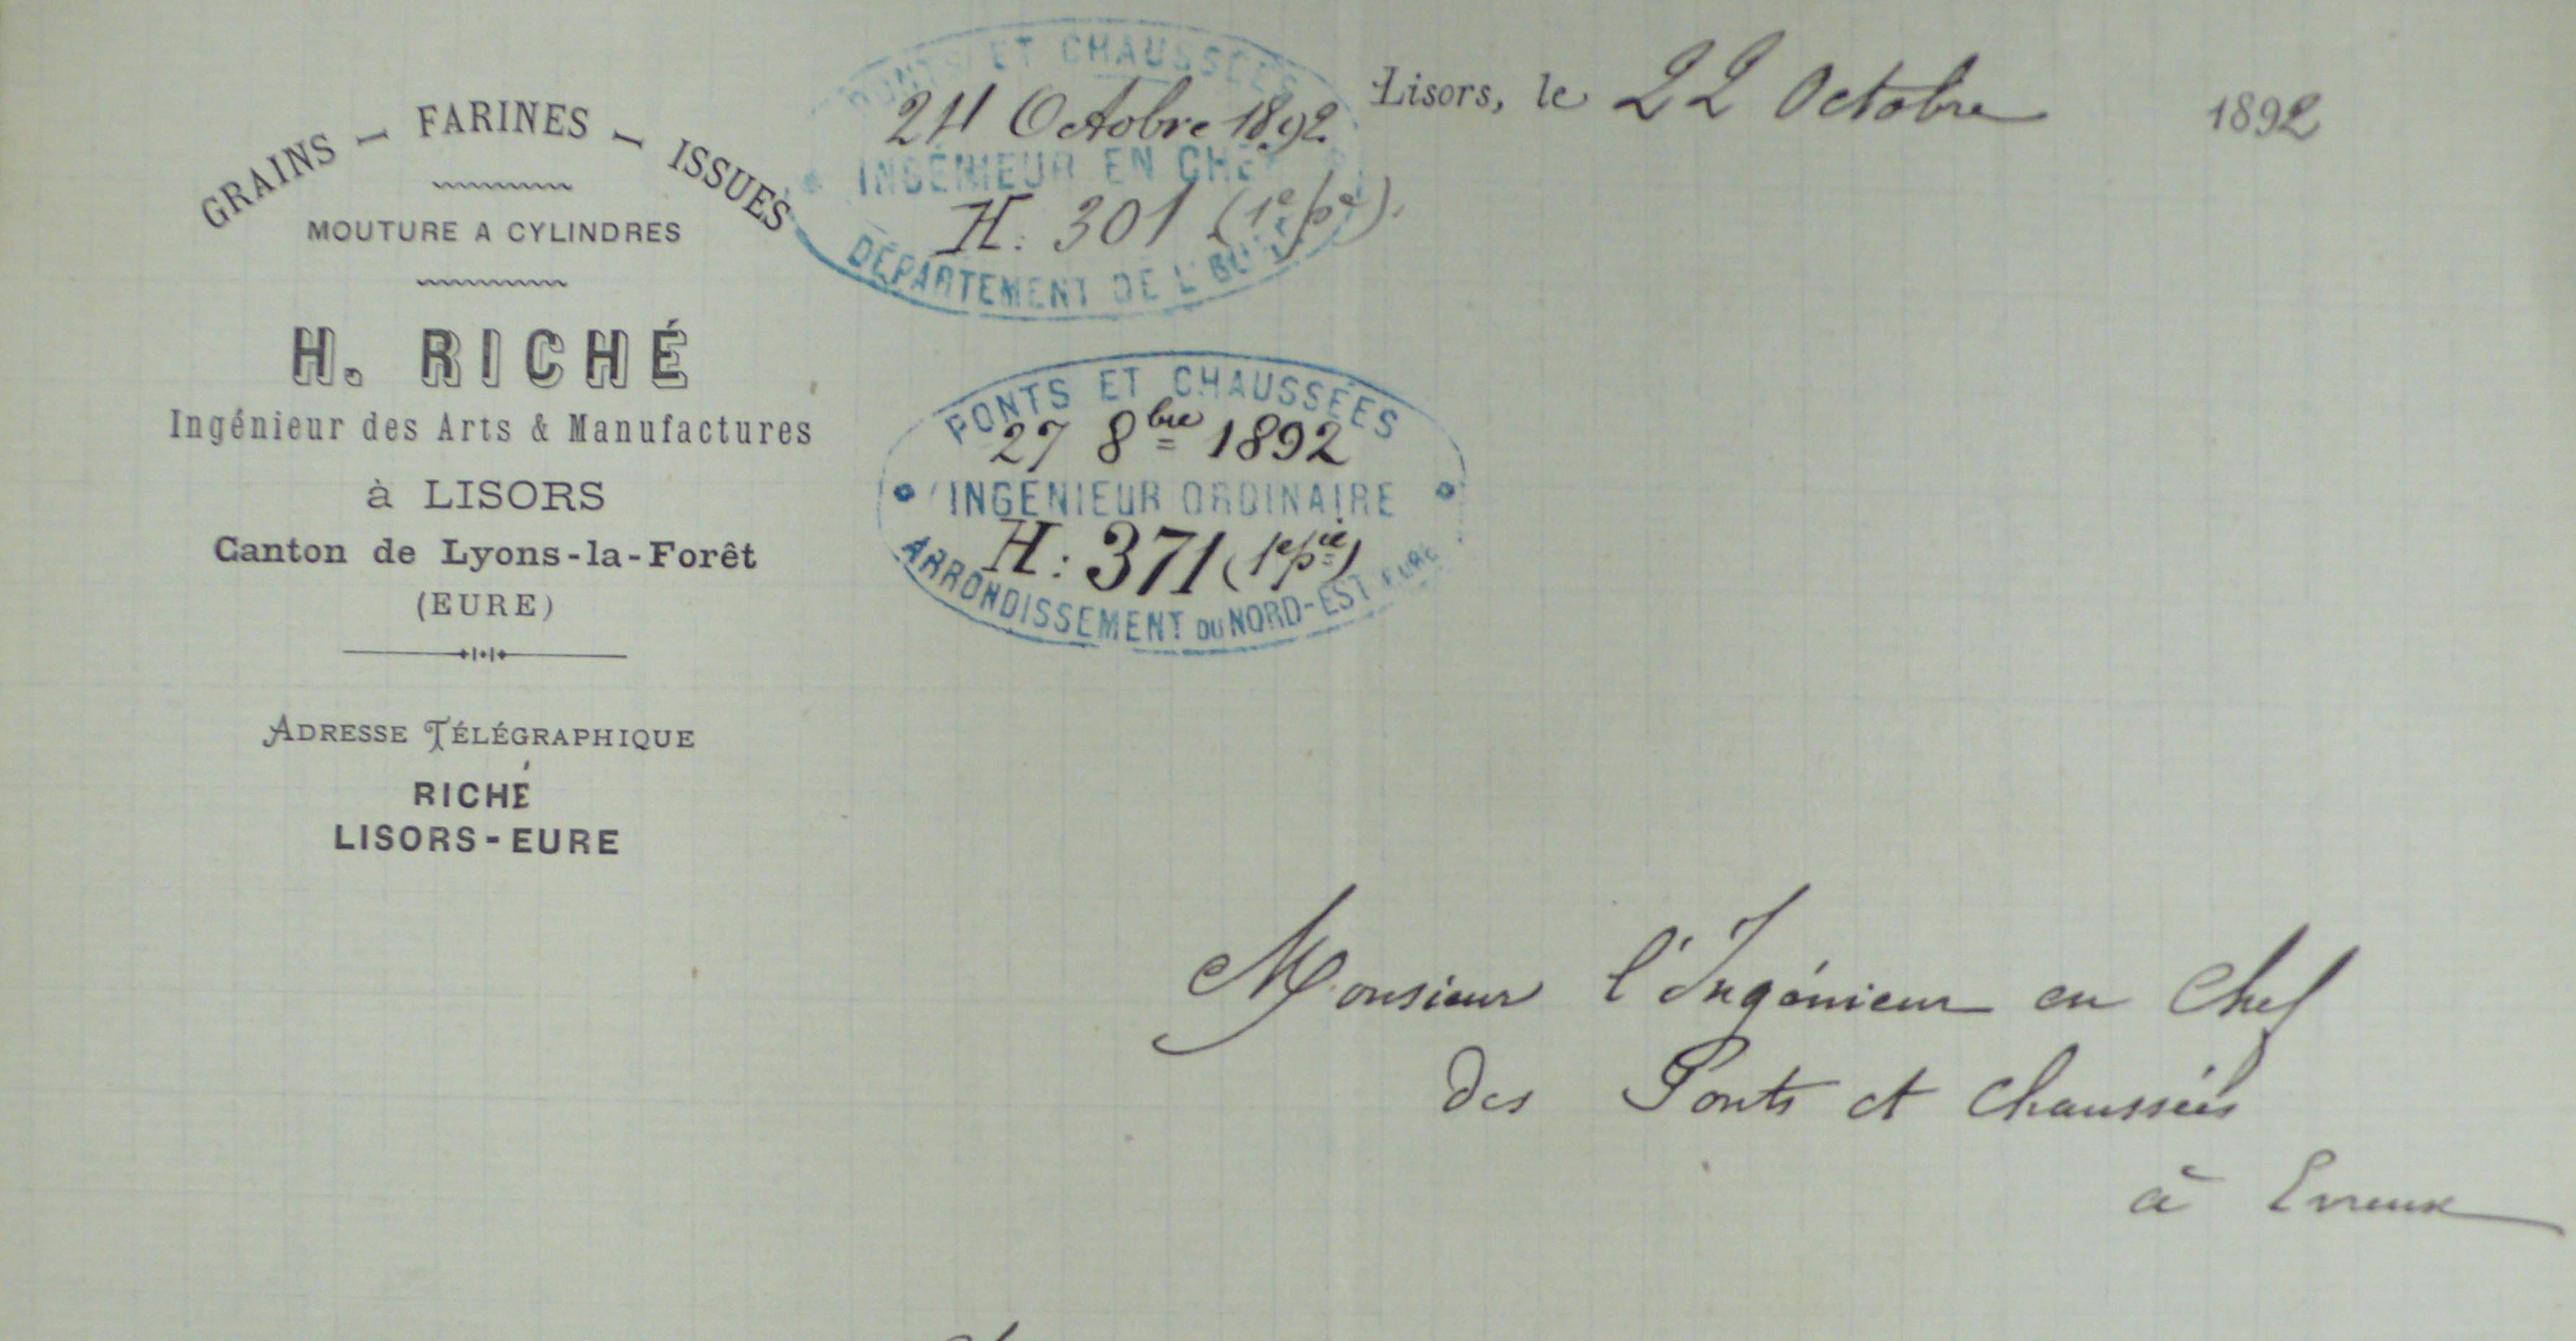 GRAINS — FARINES — ISSUES
MOUTURE A CYLINDRES
H. RICHÉ
Ingénieur des Arts & Manufactures
à LISORS
Canton de Lyons-la-Forêt
(EURE)
ADRESSE TÉLÉGRAPHIQUE
RICHÉ
LISORS-EURE
PONTS ET CHAUSSÉES
24 Octobre 1892
INGÉNIEUR EN CHEF
H: 301 (1e pe).
DÉPARTEMENT DE L'EURE
PONTS ET CHAUSSÉES
27 8bre 1892
INGÉNIEUR ORDINAIRE
H: 371 (1e pie)
ARRONDISSEMENT DU NORD-EST EURE
Lisors, le 22 Octobre 1892
Monsieur l'Ingénieur en Chef
des Ponts et Chaussées
à Evreux